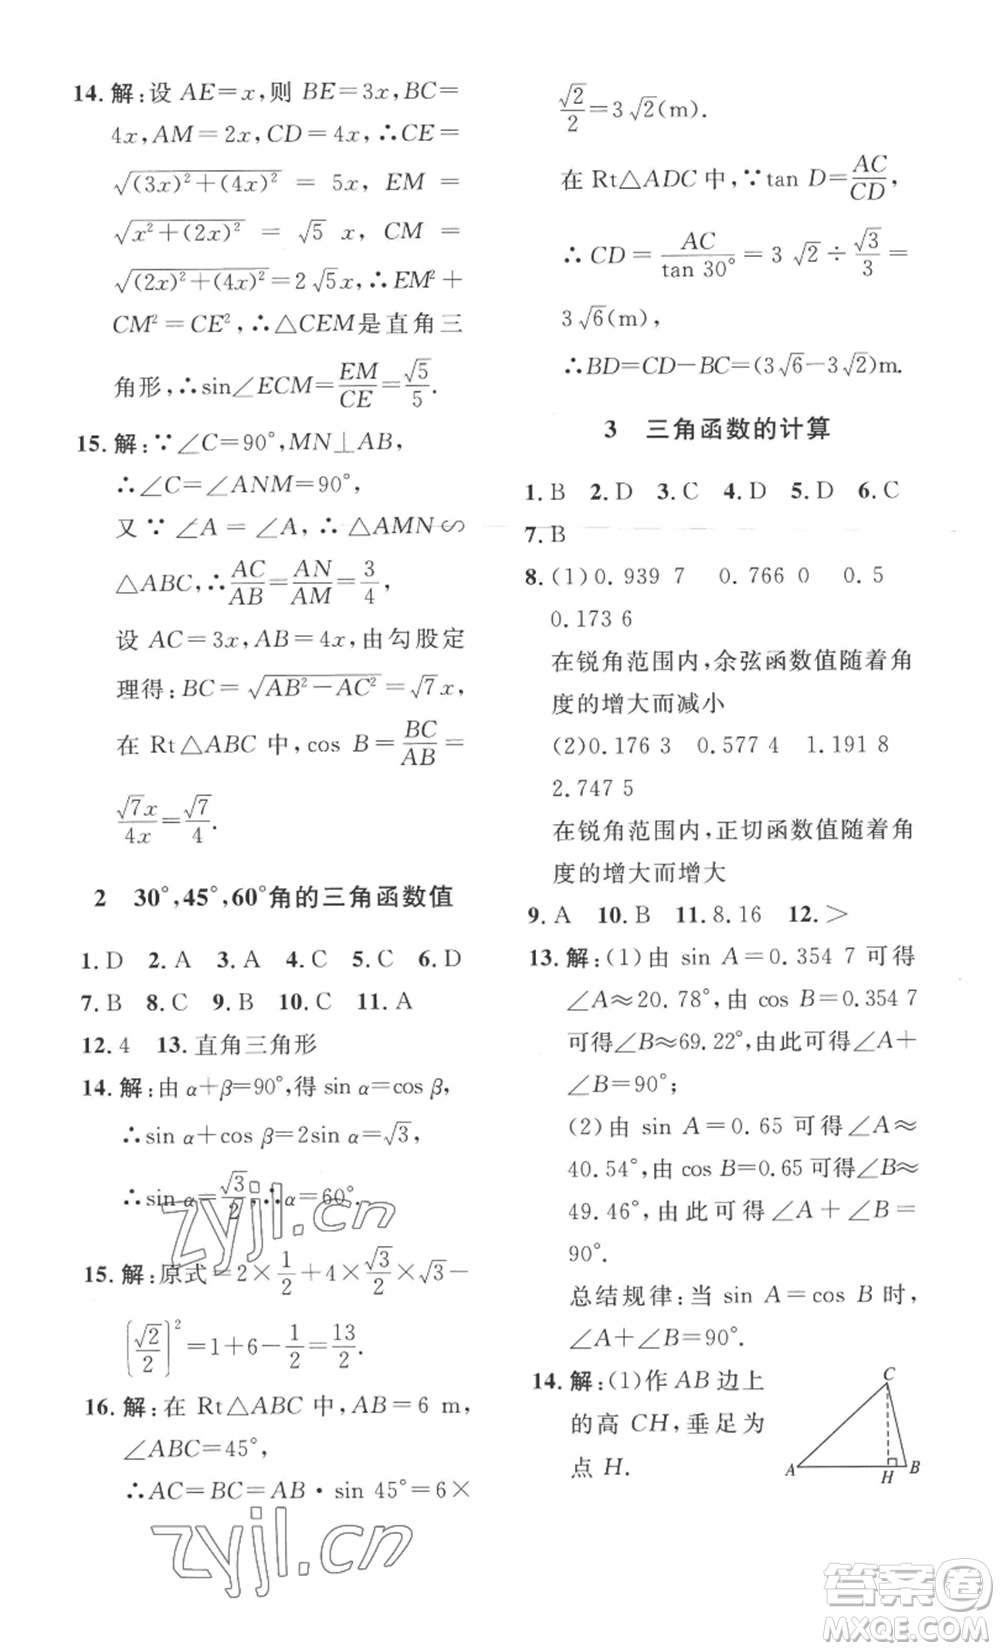 14. 解:设 AE=x,则 BE=3x,BC=
4x,AM=2x,CD=4x,∴CE=
√((3x)²+(4x)²) = 5x, EM =
√(x²+(2x)²) = √5 x, CM =
√((2x)²+(4x)²)=2√5x,∴EM²+
CM²=CE²,∴△CEM是直角三
角形,∴sin∠ECM=EM/CE=√5/5.
15. 解:∵∠C=90°,MN⊥AB,
∴∠C=∠ANM=90°,
又∵∠A=∠A,∴△AMN∽
△ABC,∴AC/AB=AN/AM=3/4,
设 AC=3x,AB=4x,由勾股定
理得:BC=√(AB²-AC²)=√7x,
在 Rt△ABC 中,cos B=BC/AB=
√7x/4x=√7/4.
2 30°,45°,60°角的三角函数值
1. D 2. A 3. A 4. C 5. C 6. D
7. B 8. C 9. B 10. C 11. A
12. 4 13. 直角三角形
14. 解:由 α+β=90°,得 sin α=cos β,
∴sin α+cos β=2sin α=√3,
∴sin α=√3/2,∴α=60°.
15. 解:原式=2×1/2+4×√3/2×√3-
(√2/2)²=1+6-1/2=13/2.
16. 解:在 Rt△ABC 中,AB=6 m,
∠ABC=45°,
∴AC=BC=AB·sin 45°=6×
√2/2=3√2(m).
在 Rt△ADC 中,∵tan D=AC/CD,
∴CD=AC/tan 30°=3√2÷√3/3=
3√6(m),
∴BD=CD-BC=(3√6-3√2)m.
3 三角函数的计算
1. B 2. D 3. C 4. D 5. D 6. C
7. B
8. (1)0.939 7 0.766 0 0.5
0.173 6
在锐角范围内,余弦函数值随着角
度的增大而减小
(2)0.176 3 0.577 4 1.191 8
2.747 5
在锐角范围内,正切函数值随着角
度的增大而增大
9. A 10. B 11. 8.16 12. >
13. 解:(1)由 sin A=0.354 7 可得
∠A≈20.78°,由 cos B=0.354 7
可得∠B≈69.22°,由此可得∠A+
∠B=90°;
(2)由 sin A=0.65 可得∠A≈
40.54°,由 cos B=0.65 可得∠B≈
49.46°,由此可得∠A+∠B=
90°.
总结规律:当 sin A=cos B 时,
∠A+∠B=90°.
14. 解:(1)作 AB 边上
的高 CH,垂足为
点 H.
C
A H B
zyjl.cn
zyjl.cn
答案圈
MXQE.COM